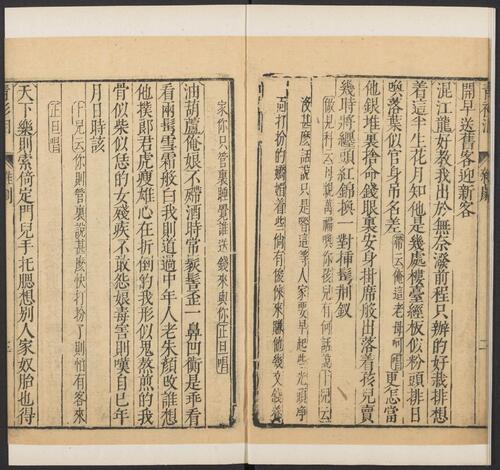 開早送舊客迎新客
混江龍好教我出於無奈潑前程只辦的好栽排想
着這半生花月知他是幾處樓臺經板似粉頭排日
喚落葉似官身吊名差 帶云俺這老母呵唱 更怎當
他銀堆裏捨命錢眼裏安身掛席般出落着孩兒賣
幾時將纏頭紅錦換一對插髻荊釵
做見科云母親萬福喚你孩兒有何話說卜兒云
沒甚麼話說只是管這等人家要早起些光頭淨
家你只管裏睡覺誰送錢來與你正旦唱
油葫蘆俺娘不殢酒時常髽髻歪一鼻凹衡是乖看
看兩鬢雪霜般白我則道過中年人老朱顏改誰想
他撲郎君虎瘦雄心在折倒的我形似鬼熬煎的我
骨似柴似恁的女殘疾不敢怨娘毒害則嘆自己年
月日時該
卜兒云你則管裏說甚麼快打扮了則怕有客來
正旦唱
天下樂則索倚定門兒手托腮想別人家奴胎也得